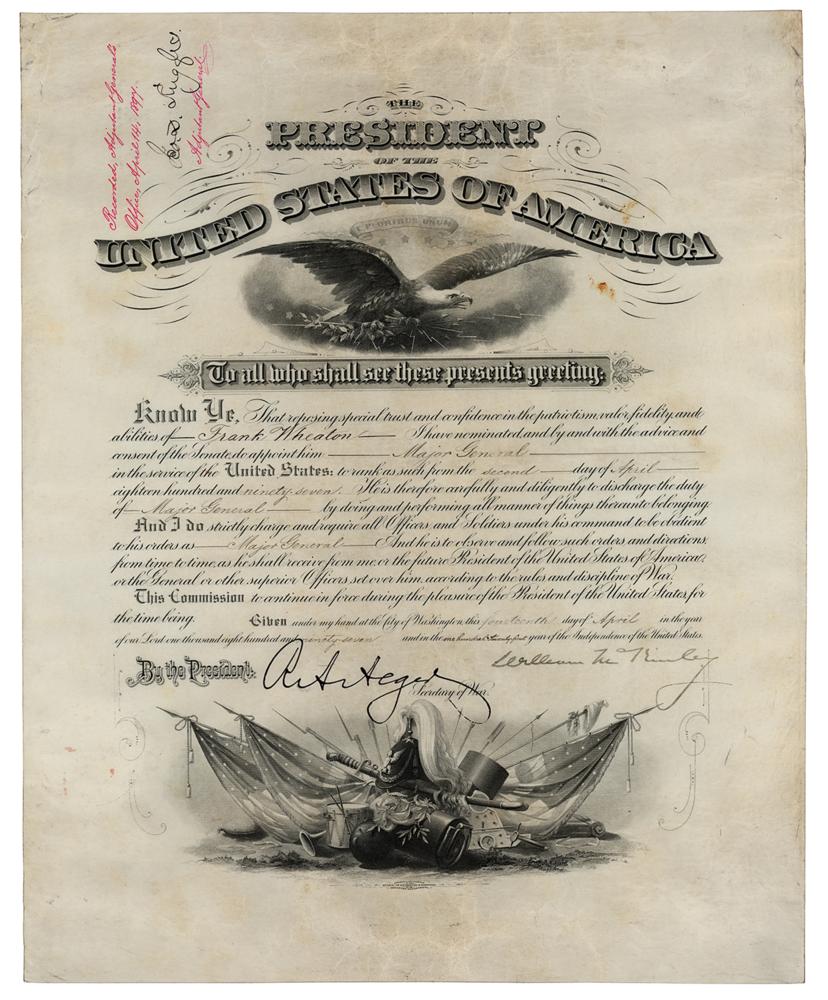 Recorded, Adjutant General's
Office, April 14, 1897.
Geo. D. Ruggles.
Adjutant General.
THE
PRESIDENT
OF THE
UNITED STATES OF AMERICA
E PLURIBUS UNUM
To all who shall see these presents greeting:
Know Ye, That reposing special trust and confidence in the patriotism, valor, fidelity, and
abilities of Frank Wheaton I have nominated, and by and with the advice and
consent of the Senate, do appoint him Major General
in the service of the United States: to rank as such from the second day of April
eighteen hundred and ninety-seven. He is therefore carefully and diligently to discharge the duty
of Major General by doing and performing all manner of things thereunto belonging.
And I do strictly charge and require all Officers and Soldiers under his command to be obedient
to his orders as Major General And he is to observe and follow such orders and directions,
from time to time, as he shall receive from me, or the future President of the United States of America,
or the General or other superior Officers set over him, according to the rules and discipline of War.
This Commission to continue in force during the pleasure of the President of the United States for
the time being. Given under my hand at the City of Washington, this fourteenth day of April in the year
of our Lord one thousand eight hundred and ninety-seven and in the one hundred & twenty first year of the Independence of the United States.
By the President: R A Alger William McKinley
Secretary of War.